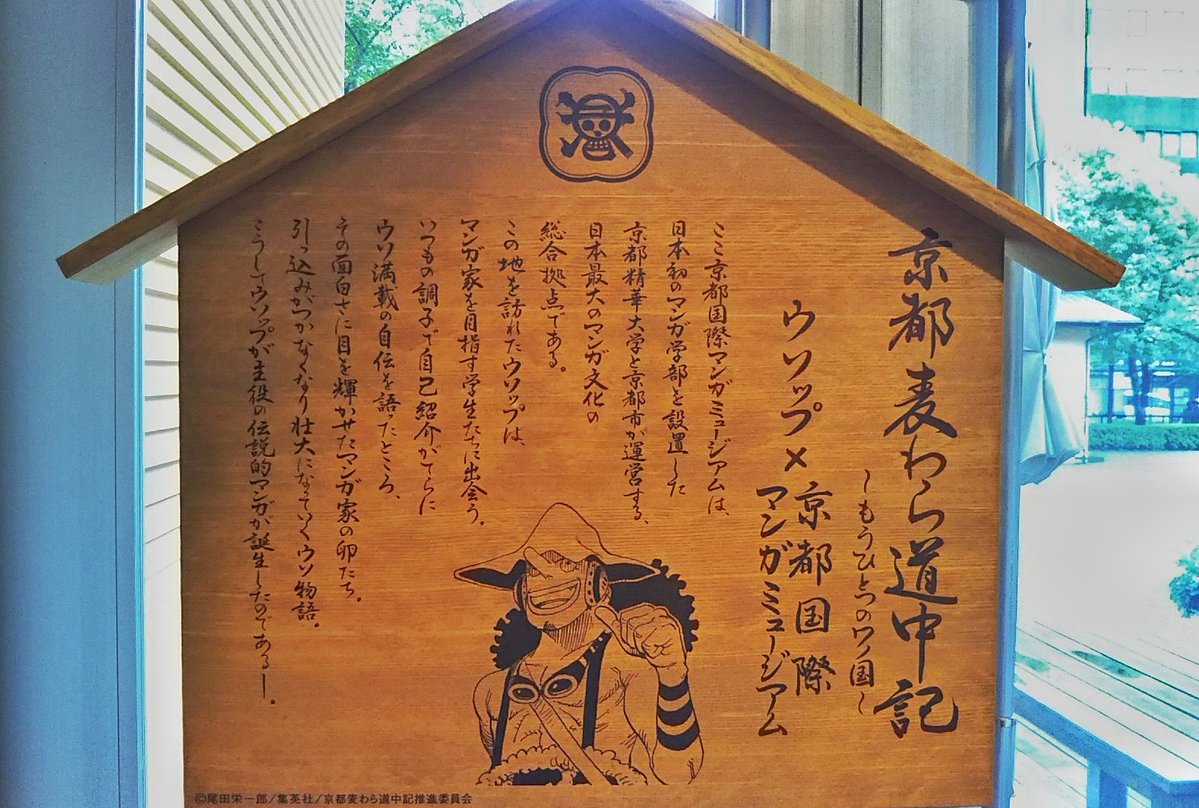 京都麦わら道中記
〜もうひとつのワノ国〜
ウソップ×京都国際
マンガミュージアム
ここ京都国際マンガミュージアムは、
日本初のマンガ学部を設置した
京都精華大学と京都市が運営する、
日本最大のマンガ文化の
総合拠点である。
この地を訪れたウソップは、
マンガ家を目指す学生たちに出会う。
いつもの調子で自己紹介がてらに
ウソ満載の自伝を語ったところ、
その面白さに目を輝かせたマンガ家の卵たち。
引っ込みがつかなくなり壮大になっていくウソ物語。
こうしてウソップが主役の伝説的マンガが誕生したのであるー。
©尾田栄一郎/集英社/京都麦わら道中記推進委員会